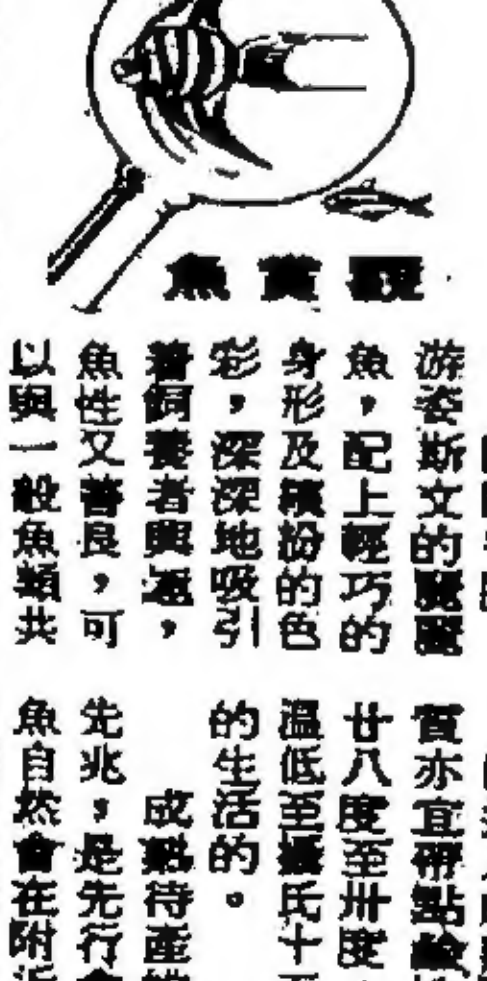 觀賞魚
游姿斯文的
魚，配上輕巧的
身形及繽扮的色
彩，深深地吸引
着飼養者興趣，
魚性又善良，可
以與一般魚類共
質亦宜帶點鹼
廿八度至卅度，
溫低至攝氏十
的生活的。
成熟待產
先兆，是先行會
魚自然會在附近